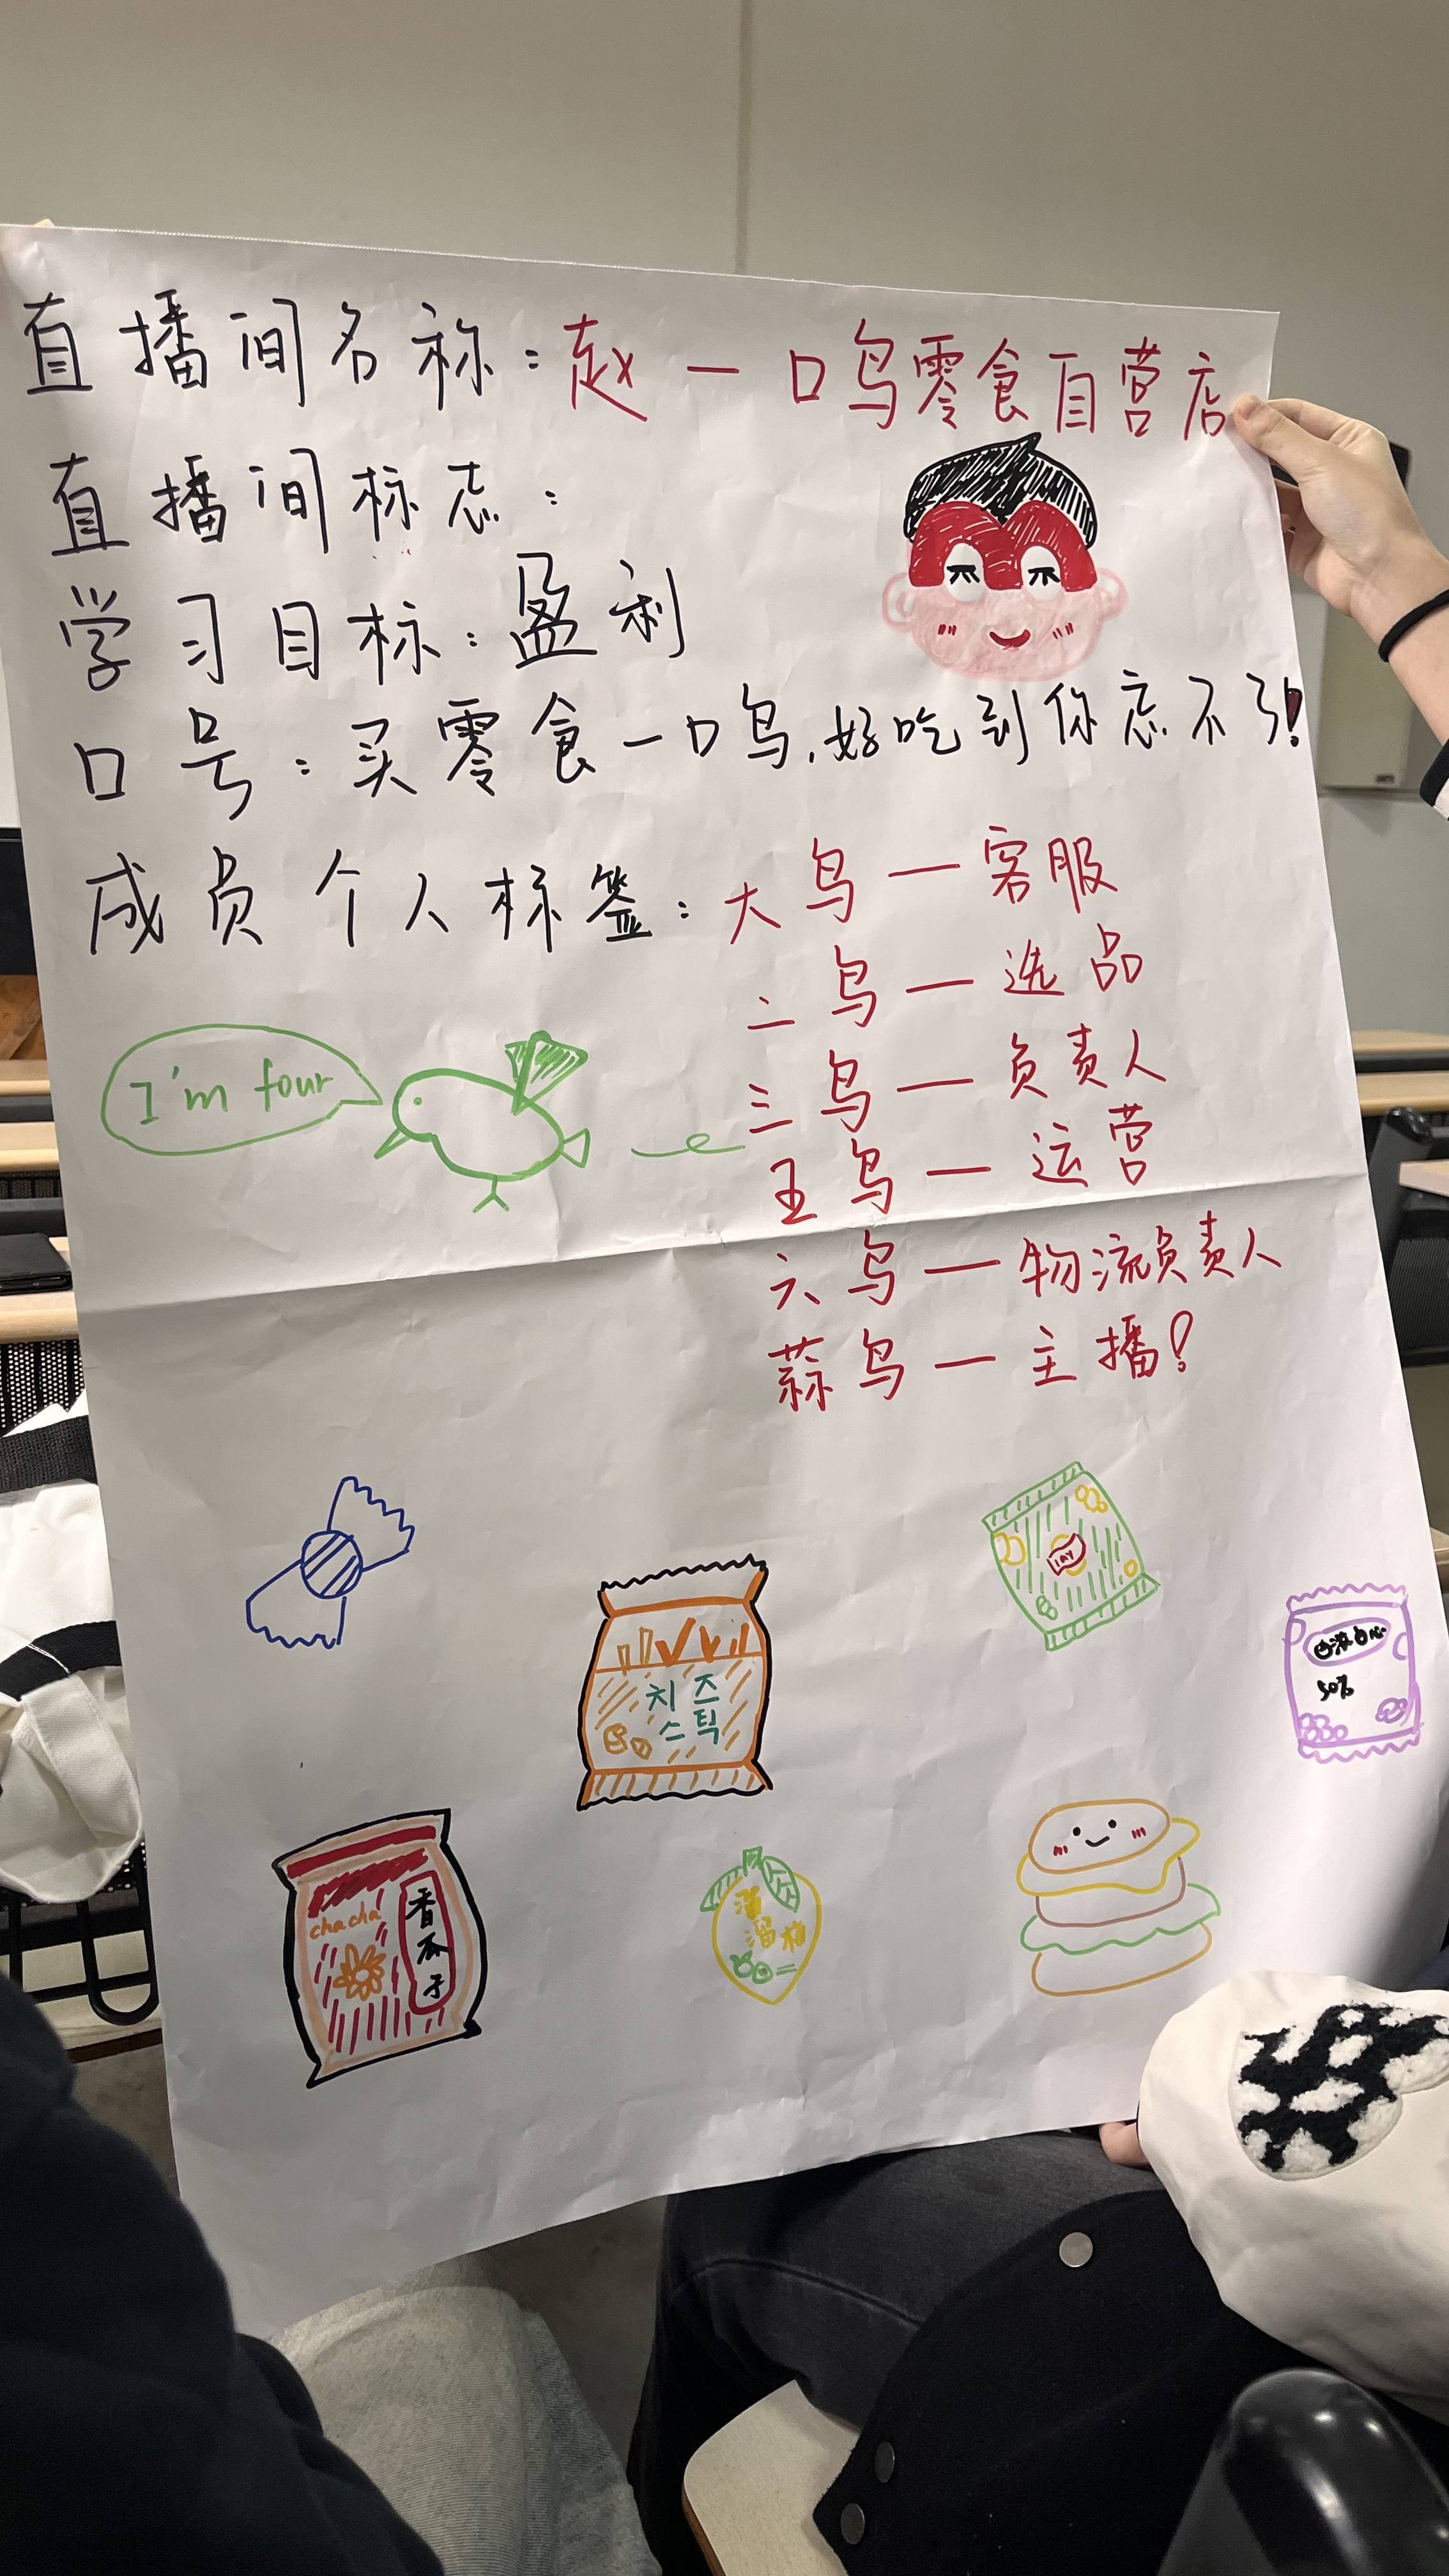 直播间名称：赵一口鸟零食自营店
直播间标志：
学习目标：盈利
口号：买零食一口鸟，好吃到你忘不了！
成员个人标签：大鸟—客服
二鸟—选品
三鸟—负责人
I'm four
王鸟—运营
六鸟—物流负责人
蒜鸟—主播！
lay
치즈
스틱
50%
chacha
香瓜子
溜
溜梅